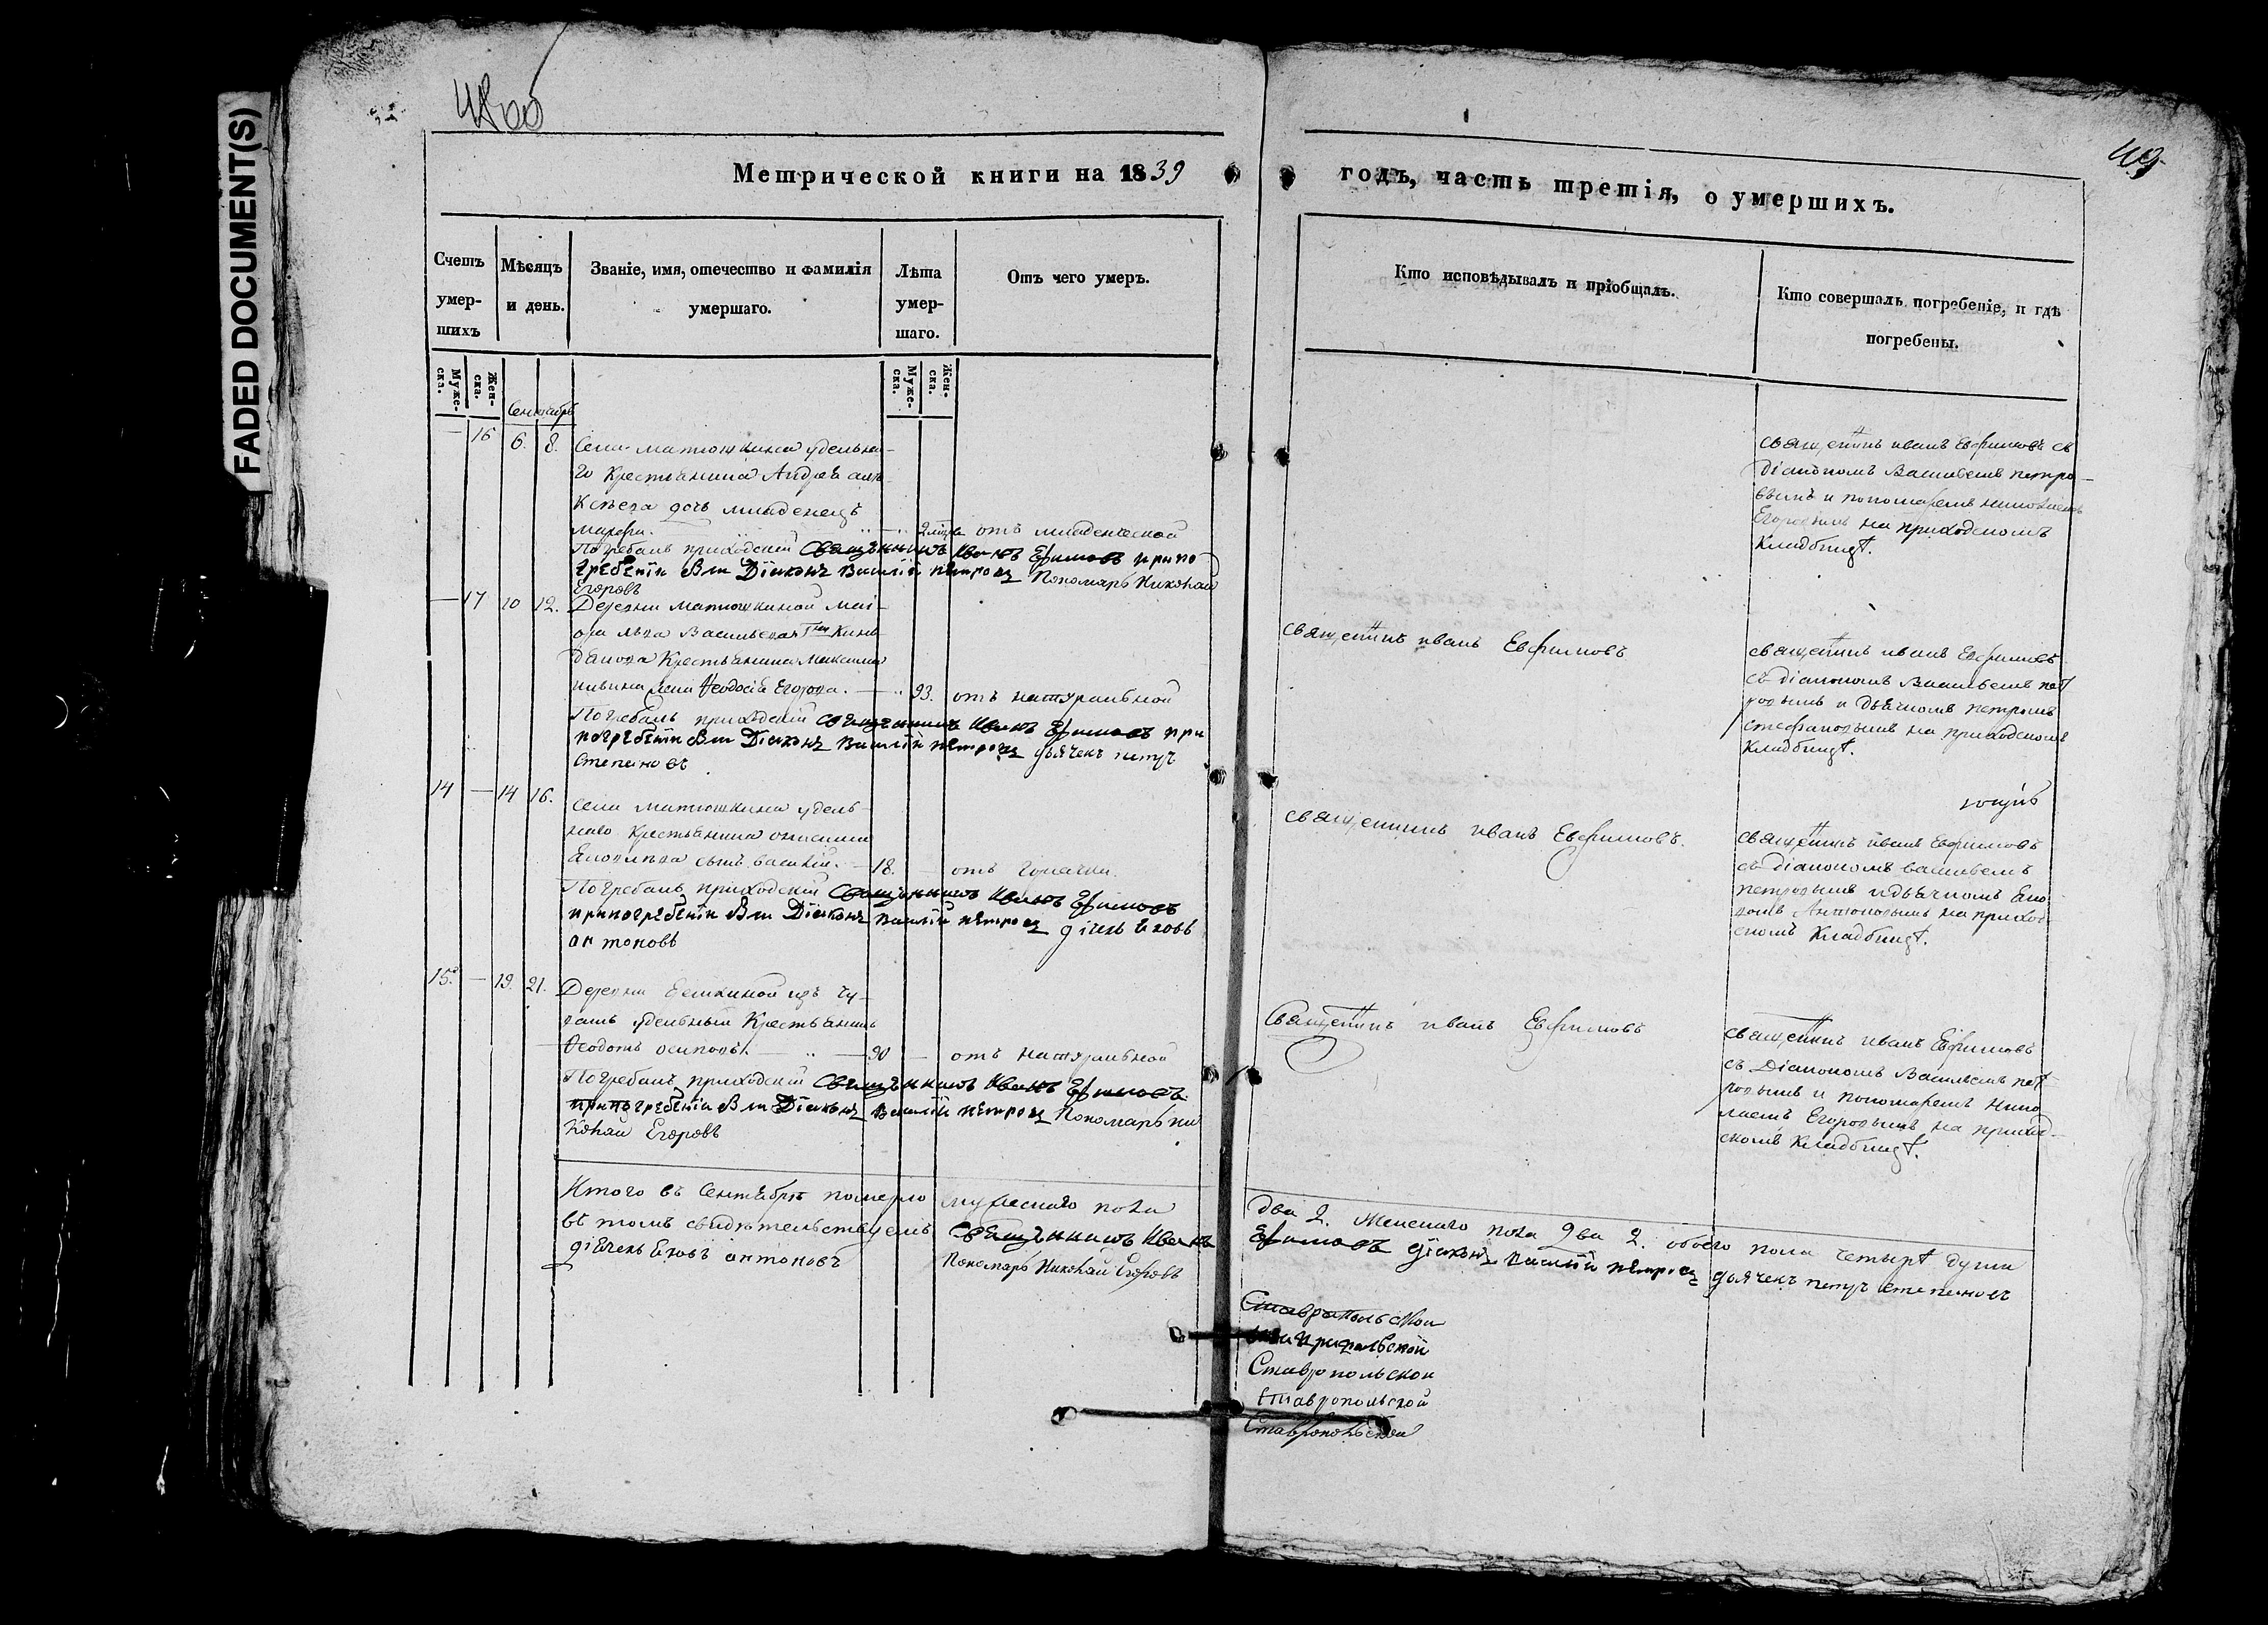 FADED DOCUMENT(S)
48об
49
Метрической книги на 1839
годъ, часть третія, о умершихъ.
Счетъ умер-шихъ
Мѣсяцъ и день.
Званіе, имя, отечество и фамилія умершаго.
Лѣта умер-шаго.
Отъ чего умеръ.
Кто исповѣдывалъ и пріобщалъ.
Кто совершалъ погребеніе, и гдѣ погребены.
Муже-ска.
Жен-ска.
Муже-ска.
Жен-ска.
Сентябрь
— 16 6. 8. Села матюшкина удельна-
го Крестьянина Андрея але-
ксѣева дочь младенецъ
марфа. отъ младенческой
Погребалъ приходскій Священникъ Иванъ Ефимовъ при по
гребеніи были Діаконъ Василій петровъ Пономарь Николай
Егоровъ
священникъ иванъ Евфимовъ съ
Діакономъ Васильемъ петро-
вымъ и пономаремъ николаемъ
Егоровымъ на приходскомъ
Кладбищѣ.
— 17 10 12. Деревни Матюшкиной маі-
ора льва Васильева
Крестьянина максима
жена Ѳеодосія Егорова. — 93. отъ натуральной
Погребалъ приходскій священникъ Иванъ Ефимовъ при
погребеніи были Діаконъ Василій петровъ дьячекъ петръ
степановъ
священникъ иванъ Евфимовъ
священникъ иванъ Евфимовъ
съ діакономъ Васильемъ пет
ровымъ и дьячкомъ петромъ
стефановымъ на приходскомъ
Кладбищѣ.
14 — 14 16. Села матюшкина удель-
наго крестьянина
сынъ василій. — 18. — отъ горячки.
Погребалъ приходскій Священникъ Иванъ Ефимовъ
при погребеніи были Діаконъ Василій петровъ дьячекъ
антоновъ
священникъ иванъ Евфимовъ.
священникъ иванъ Евфимовъ
съ діакономъ васильемъ
петровымъ и дьячкомъ
Антоновымъ на приход-
скомъ Кладбищѣ.
15. — 19. 21. Деревни изъ чу-
вашъ удельный Крестьянинъ
Ѳеодотъ осиповъ. — 90 — отъ натуральной
Погребалъ приходскій Священникъ Иванъ Ефимовъ.
при погребеніи были Діаконъ Василій петровъ Пономарь ни
колай Егоровъ
Священникъ иванъ Евфимовъ
священникъ иванъ Евфимовъ
съ Діакономъ Васильемъ пет
ровымъ и пономаремъ Нико
лаемъ Егоровымъ на приход-
скомъ Кладбищѣ.
Итого въ Сентябрѣ померло мужескаго пола два 2. Женскаго пола два 2. обоего пола четырѣ души
въ томъ свидѣтельствуемъ Священникъ Иванъ Ефимовъ діаконъ Василій петровъ дьячекъ петръ степановъ
дьячекъ антоновъ Пономарь Николай Егоровъ
Ставропольской
Ставропольской
Ставропольской
Ставропольской